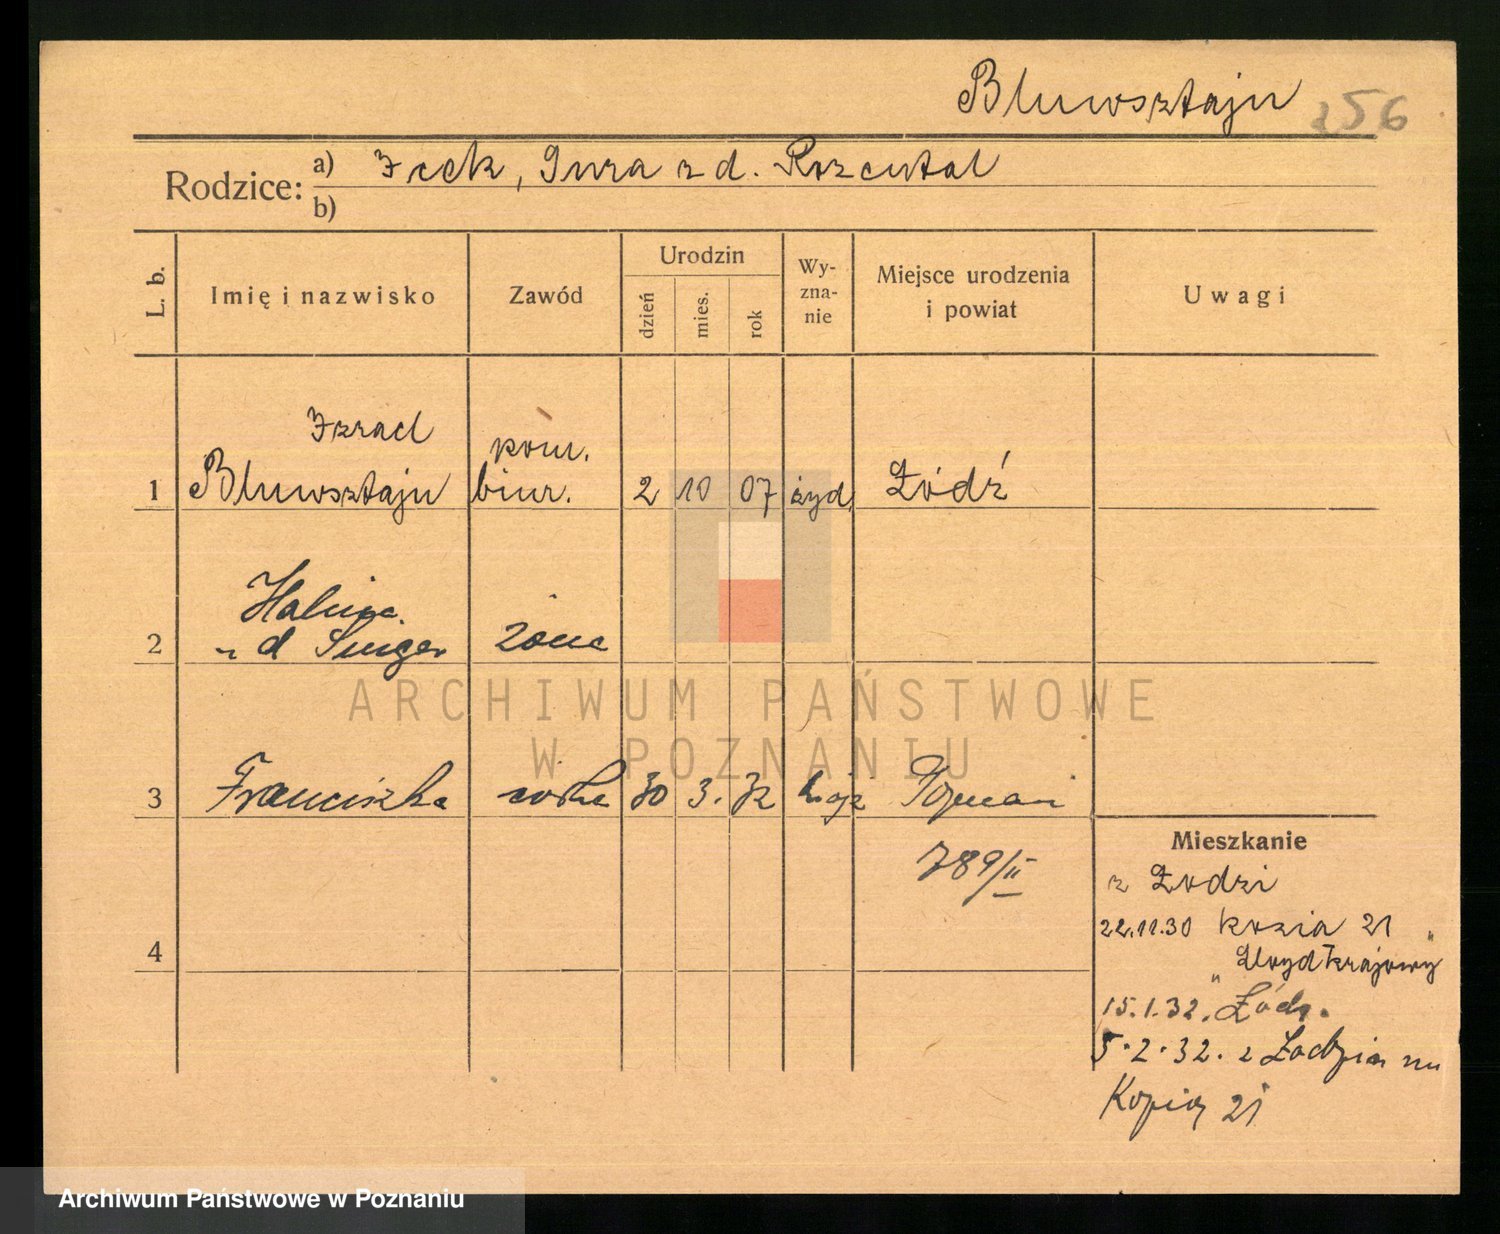 Bluwsztajn 256
Rodzice: a) Icek, Sura z d. Rozental
b)
L. b. Imię i nazwisko Zawód Urodzin dzień mies. rok Wy-zna-nie Miejsce urodzenia i powiat Uwagi
Izrael kom.
1 Bluwsztajn biur. 2 10 07 żyd. Łódź
Halina
2 z d Singer żona
3 Franciszka córka 30 3. 32 Poznań
789/II
4
Mieszkanie
z Łodzi
22.11.30 Kozia 21
"Lloyd krajowy"
15.1.32. Łódź.
5.2.32. z
Kozia 21
ARCHIWUM PAŃSTWOWE
W POZNANIU
Archiwum Państwowe w Poznaniu